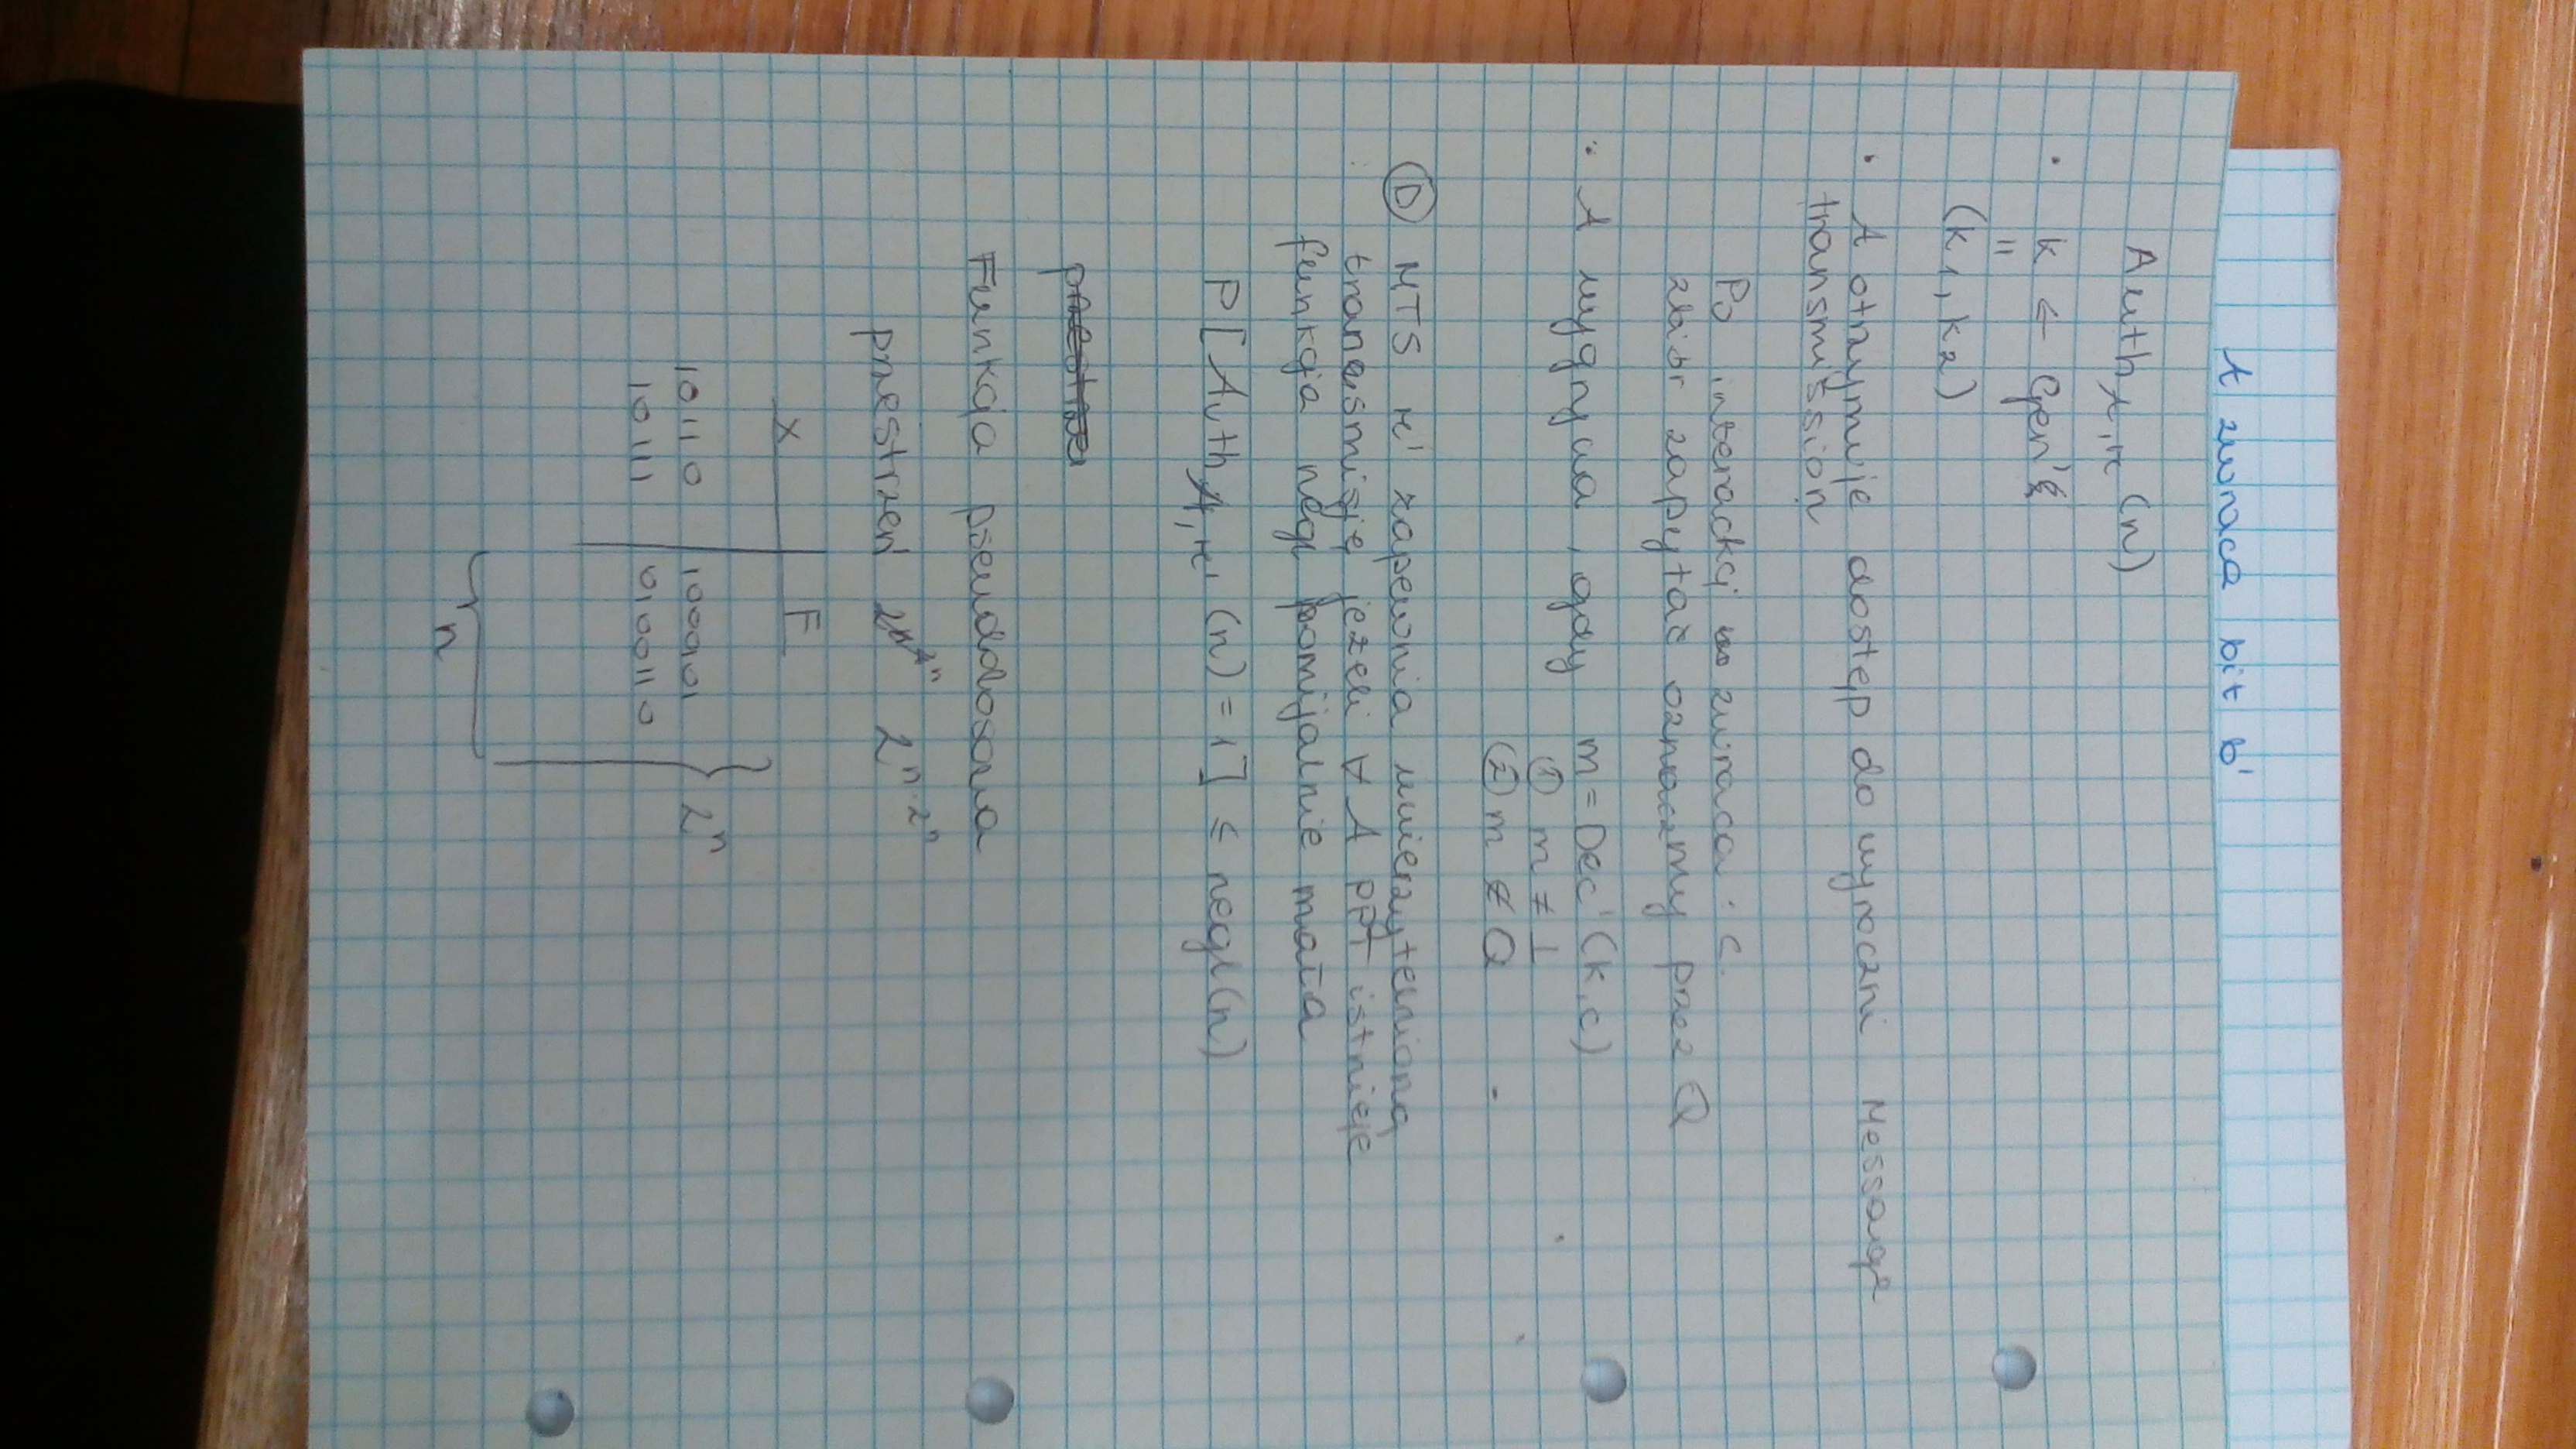 A zwraca bit b'
Auth A,π (n)
• K ← Gen'
=
(K1, K2)
• A otrzymuje dostęp do wyroczni Message
transmission
Po interakcji zwraca : c.
zbiór zapytać oznaczmy przez Q
• A wygrywa, gdy m = Dec'(K,c)
① m ≠ ⊥
② m ∉ Q
Ⓓ MTS π' zapewnia uwierzytelnioną
transmisję jeżeli ∀ A PPT istnieje
funkcja negl pomijalnie mała
P[Auth A,π' (n) = 1] ≤ negl(n)
Funkcja pseudolosowa
przestrzeń 2^n·2^n
X F
10110 100101
10111 0100110
2^n
n